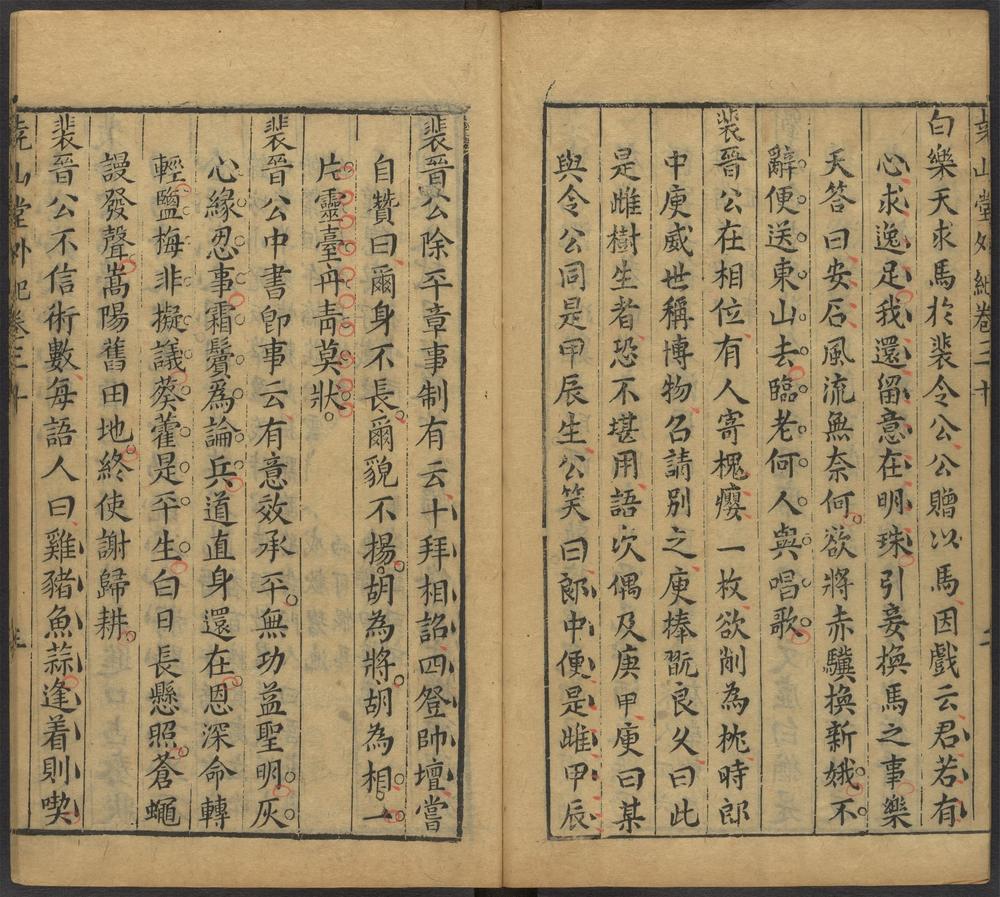 堯山堂外紀卷三十 二
白樂天求馬於裴令公公贈以馬因戲云君若有
心求逸足我還留意在明珠引妾換馬之事樂
天答曰安石風流無奈何欲將赤驥換新娥不
辭便送東山去臨老何人與唱歌
裴晉公在相位有人寄槐癭一枚欲削為枕時郎
中庚威世稱博物召請別之庾棒翫良久曰此
是雌樹生者恐不堪用語次偶及庚甲庾曰某
與令公同是甲辰生公笑曰郎中便是雌甲辰
裴晉公除平章事制有云十拜相詔四登帥壇嘗
自贊曰爾身不長爾貌不揚胡為將胡為相一
片靈臺丹靑莫狀
裴晉公中書卽事云有意效承平無功益聖明灰
心緣忍事霜鬢為論兵道直身還在恩深命轉
輕鹽梅非擬議葵藿是平生白日長懸照蒼蠅
謾發聲嵩陽舊田地終使謝歸耕
裴晉公不信術數每語人曰雞豬魚蒜逢着則喫
堯山堂外紀卷三十